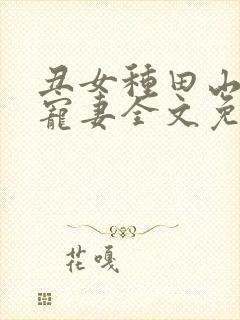 丑女種田山
寵妻全文免
花嘎